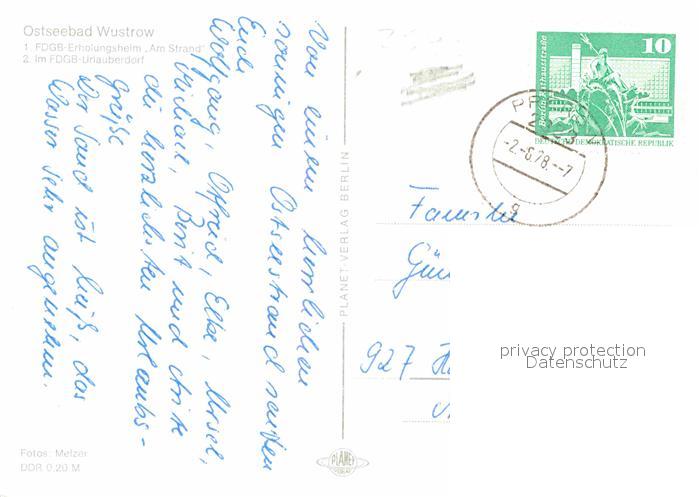 Ostseebad Wustrow
1. FDGB-Erholungsheim „Am Strand"
2. Im FDGB-Urlauberdorf
Von einem herrlichen
sonnigen Ostseestrand senden
Euch
Wolfgang, Otfried, Elke, Ursel,
Michael, Berit und
die herzlichsten Urlaubs-
grüße
Der Sand ist heiß, das
Wasser sehr angenehm.
Fotos: Melzer
DDR 0,20 M
PLANET-VERLAG BERLIN
PLANET
VERLAG
10
Berlin, Rathausstraße
DEUTSCHE DEMOKRATISCHE REPUBLIK
-2.-6.78.--7
a
Familie
Gün
927
privacy protection
Datenschutz